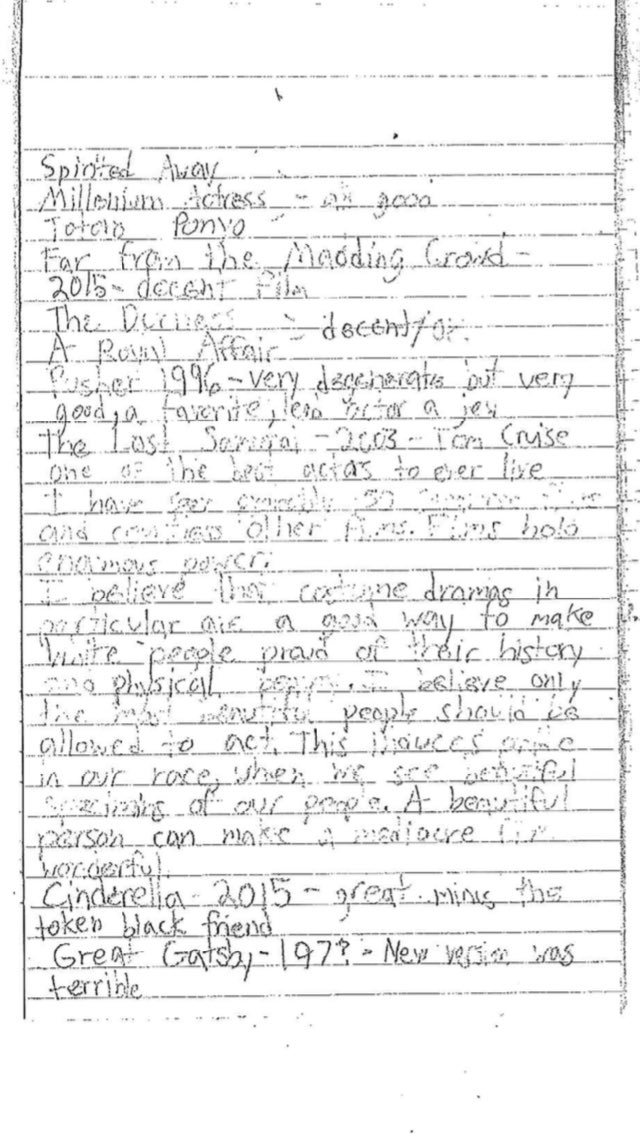 Spirited Away
Millenium Actress - all good
Totoro Ponyo -
Far from the Madding Crowd -
2015 - decent film
The Duchess - decent/ok.
A Royal Affair
Pusher 1996 - very degenerate but very
good, a favorite, lead actor a jew
The Last Samurai - 2003 - Tom Cruise
one of the best actors to ever live
I have seen 150
and countless other films. Films hold
enormous power.
I believe that costume dramas in
particular are a good way to make
White people proud of their history
and physical beauty. I believe only
the most beautiful people should be
allowed to act. This induces pride
in our race, when we see beautiful
specimins of our people. A beautiful
person can make a mediocre film
wonderful.
Cinderella - 2015 - great minus the
token black friend
Great Gatsby - 197? - New version was
terrible